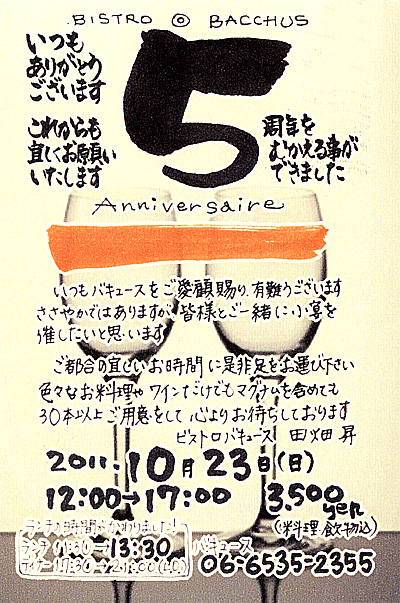 BISTRO ◎ BACCHUS
いつも
ありがとう
ございます
これからも
宜しくお願い
いたします
5
周年を
むかえる事が
できました
Anniversaire
いつもバキュースをご愛顧賜り、有難うございます
ささやかではありますが皆様とご一緒に小宴を
催したいと思います
ご都合の宜しいお時間に是非足をお運び下さい
色々なお料理やワインだけでもマグナムを含めても
30本以上ご用意をして心よりお待ちしております
ビストロバキュース 田畑 昇
2011.10月23日(日)
12:00→17:00 3,500 yen
(料理・飲物込)
ランチの時間がかわりました!
ランチ 11:30→13:30
ディナー 17:30→21:00(L.O)
バキュース
06-6535-2355